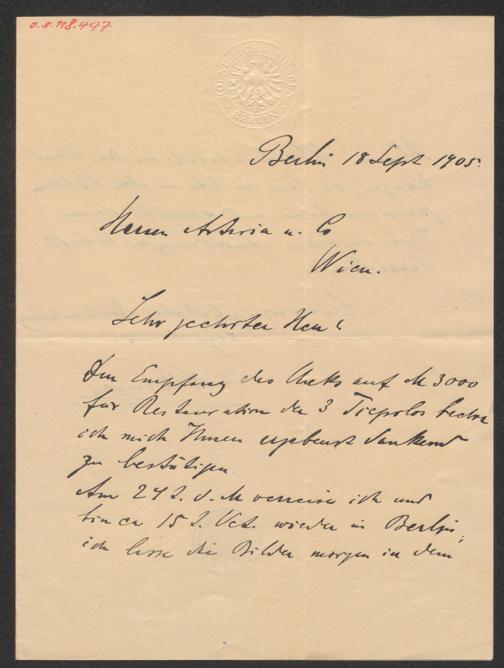 J.N. 118.497
KÖNIGLICHE MUSEEN
BERLIN
Berlin 18 Sept 1905.
Herren Artaria u. Co
Wien.
Sehr geehrter Herr!
Den Empfang des Cheks auf M 3000
für Restauration der 3 Tiepolos beehre
ich mich Ihnen ergebenst dankend
zu bestätigen.
Am 24 d. M verreise ich und
bin ca 15 Oct. wieder in Berlin,
ich lasse die Bilder morgen in dem